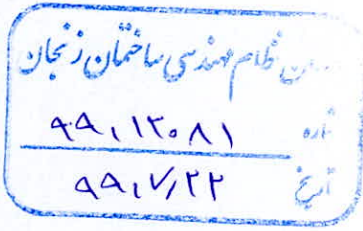 سازمان نظام مهندسی ساختمان زنجان
شماره ۹۹،۱۲۰۸۱
تاریخ ۹۹،۷،۲۲